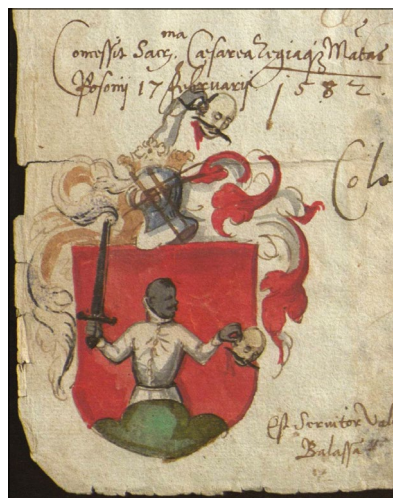 Concessit Sacr. ma Caesarea Regiaq3 Mattas
Posonij 17 februarij 1582.
Colo
Est Servitor Val
Balassa